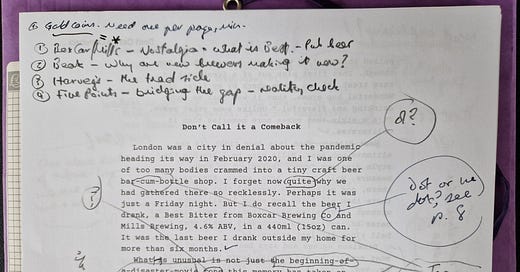 Gold coins. Need one per page, min.
① Boxcar/Mills – Nostalgia – what is Best – Pub beer
② Best – Why are new brewers making it now?
③ Harvey's – the trad side
④ Five Points – bridging the gap – reality check
Don't Call it a Comeback
d?
London was a city in denial about the pandemic
heading its way in February 2020, and I was one
of too many bodies crammed into a tiny craft beer
bar-cum-bottle shop. I forget now quite why we
had gathered there so recklessly. Perhaps it was
just a Friday night. But I do recall the beer I
drank, a Best Bitter from Boxcar Brewing Co and
Mills Brewing, 4.6% ABV, in a 440ml (15oz) can.
It was the last beer I drank outside my home for
more than six months.
?
Dot or no
dot? see
p. 8
What is unusual is not just the beginning-of
a-disaster-movie
this memory has taken on